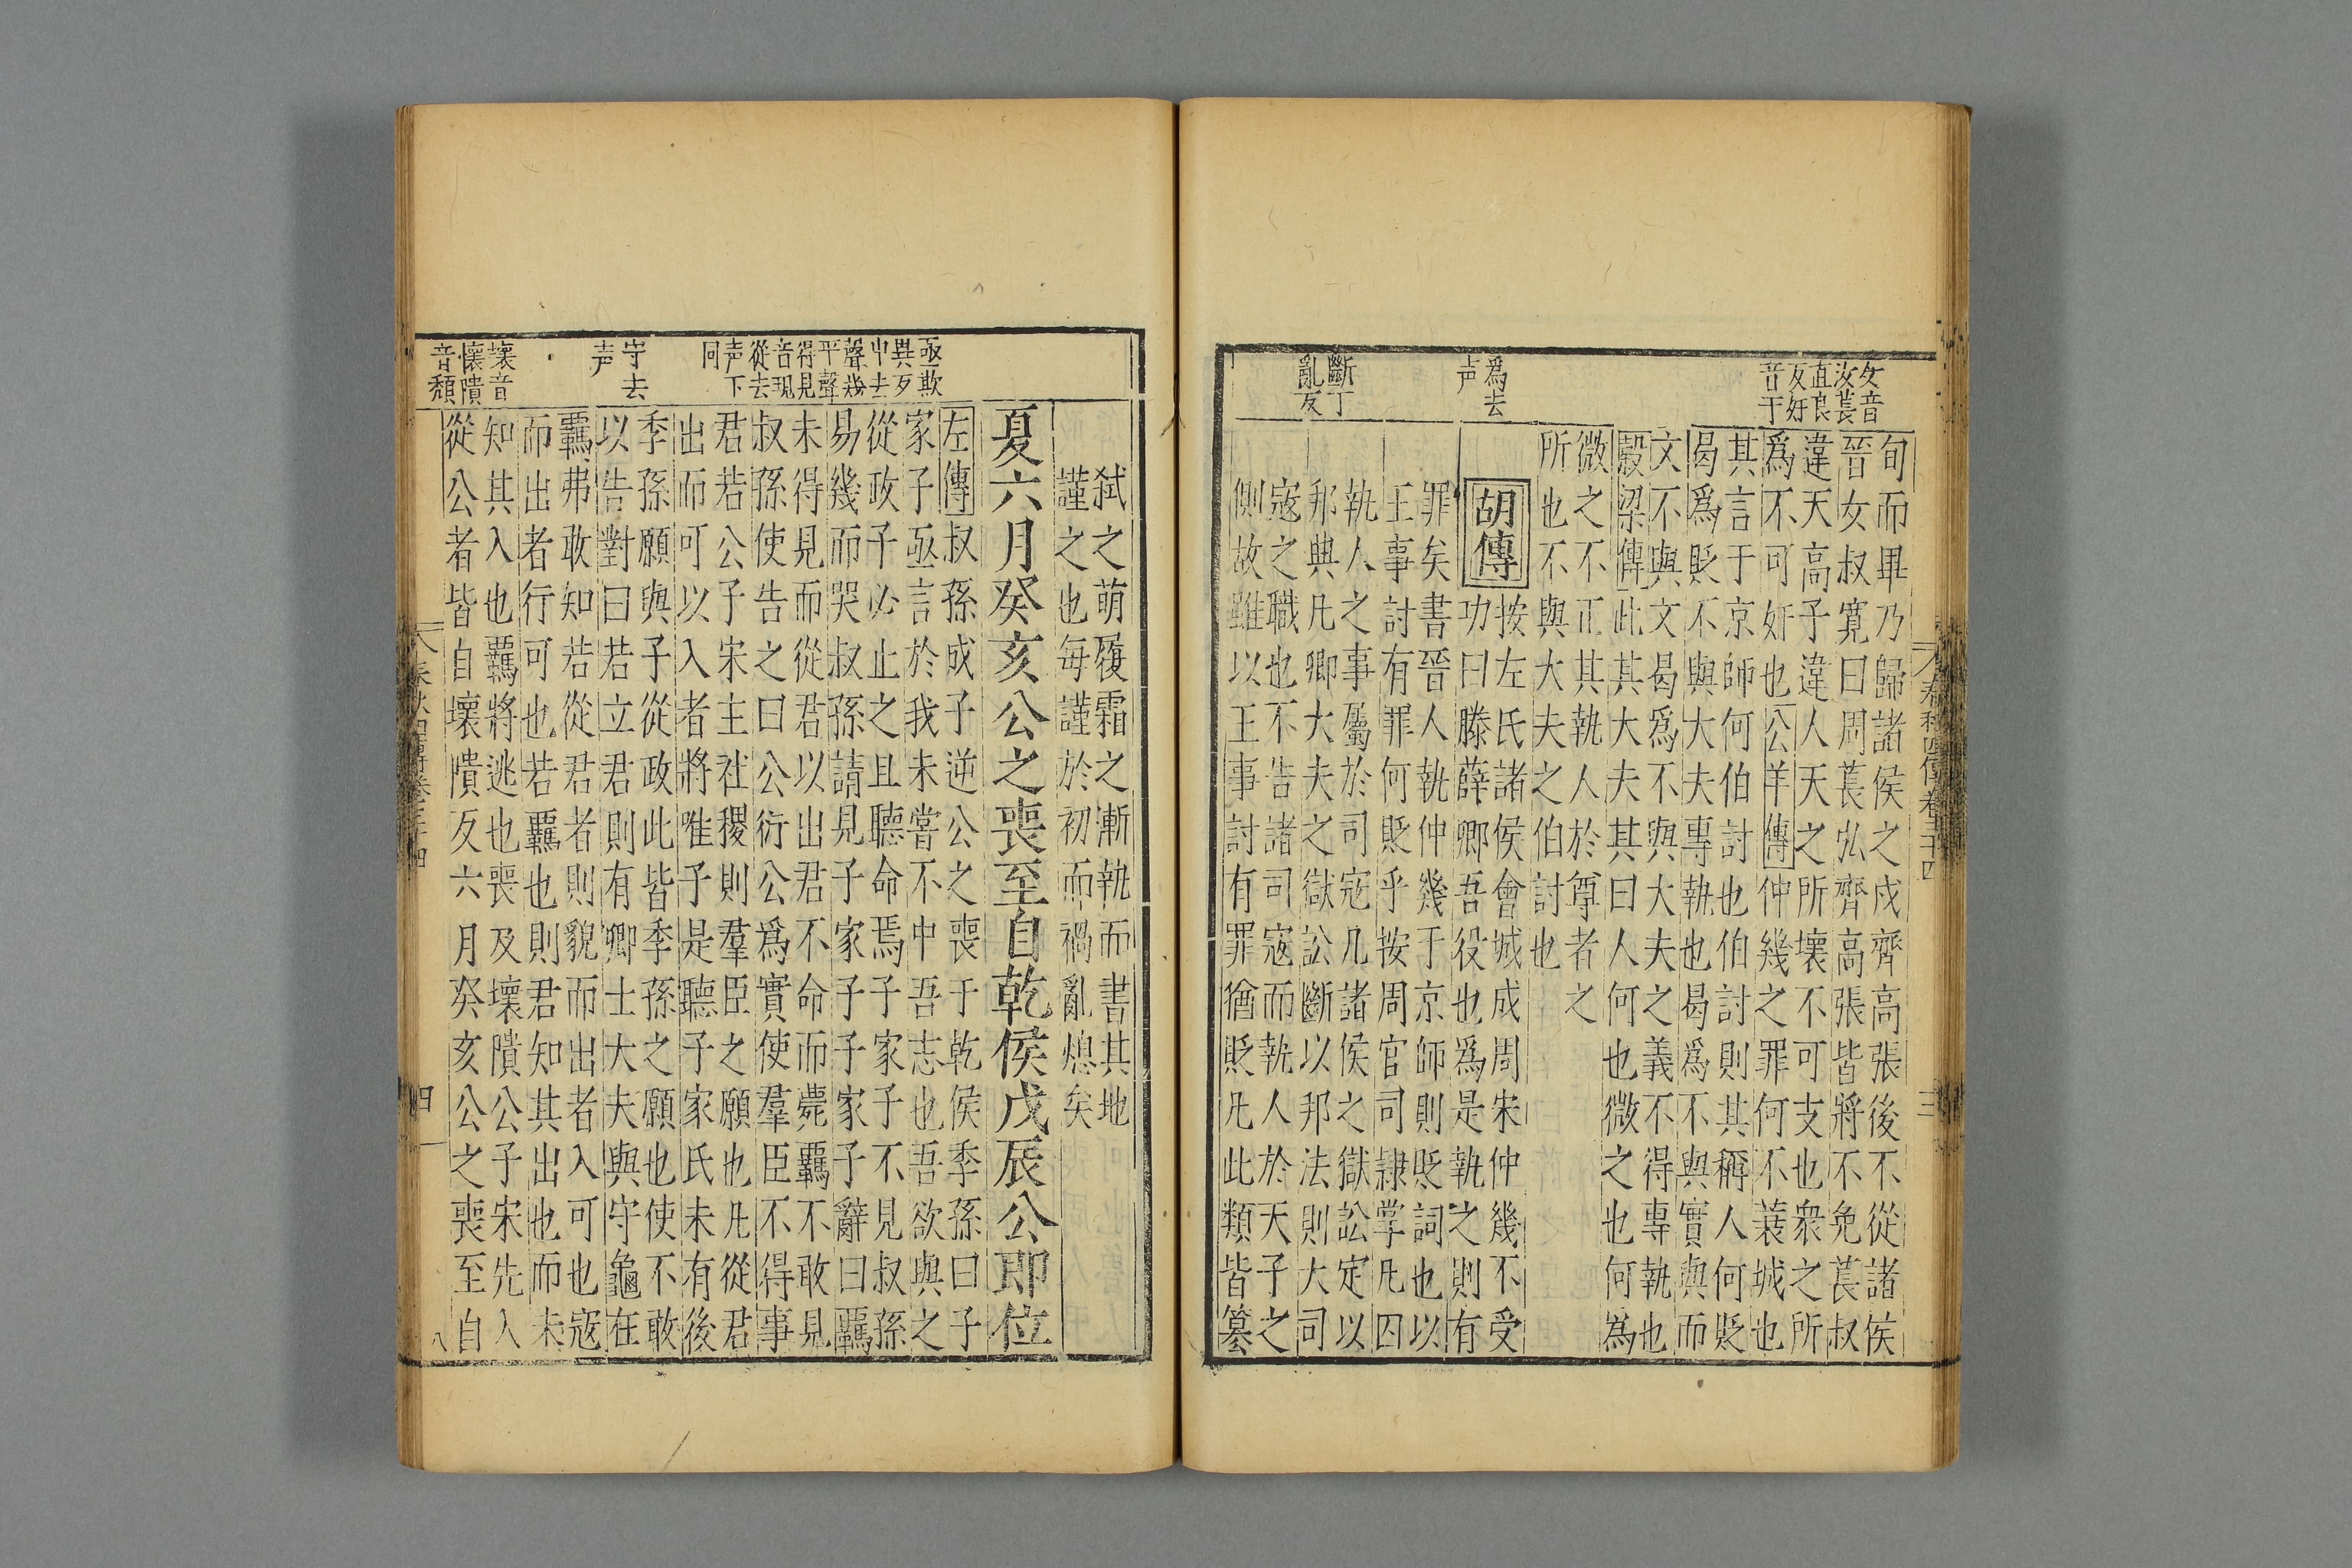 女音
汝萇
直良
反好
音干
爲去
声
斷丁
亂反
句而畢乃歸諸侯之戍齊高張後不從諸侯
晉女叔寬曰周萇弘齊高張皆將不免萇叔
違天高子違人天之所壞不可支也衆之所
爲不可奸也公羊傳仲幾之罪何不蓑城也
其言于京師何伯討也伯討則其稱人何貶
曷爲貶不與大夫專執也曷爲不與實與而
文不與文曷爲不與大夫之義不得專執也
穀梁傳此其大夫其曰人何也微之也何爲
微之不正其執人於尊者之
所也不與大夫之伯討也
胡傳
按左氏諸侯會城成周宋仲幾不受
功曰滕薛郳吾役也爲是執之則有
罪矣書晉人執仲幾于京師則貶詞也以
王事討有罪何貶乎按周官司隸掌凡囚
執人之事屬於司寇凡諸侯之獄訟定以
邦典凡卿大夫之獄訟斷以邦法則大司
寇之職也不告諸司寇而執人於天子之
側故雖以王事討有罪猶貶凡此類皆篡
春秋四傳卷三十四
三
弑之萌履霜之漸執而書其地
謹之也每謹於初而禍亂熄矣
夏六月癸亥公之喪至自乾侯戊辰公即位
亟欺
異反
中去
聲幾
平聲
得見
音現
從去
声下
同
守去
声
壞音
懷隤
音頹
左傳叔孫成子逆公之喪于乾侯季孫曰子
家子亟言於我未嘗不中吾志也吾欲與之
從政子必止之且聽命焉子家子不見叔孫
易幾而哭叔孫請見子家子子家子辭曰羈
未得見而從君以出君不命而薨羈不敢見
叔孫使告之曰公衍公爲實使羣臣不得事
君若公子宋主社稷則羣臣之願也凡從君
出而可以入者將唯子是聽子家氏未有後
季孫願與子從政此皆季孫之願也使不敢
以告對曰若立君則有卿士大夫與守龜在
羈弗敢知若從君者則貌而出者入可也寇
而出者行可也若羈也則君知其出也而未
知其入也羈將逃也喪及壞隤公子宋先入
從公者皆自壞隤反六月癸亥公之喪至自
春秋四傳卷三十四
四